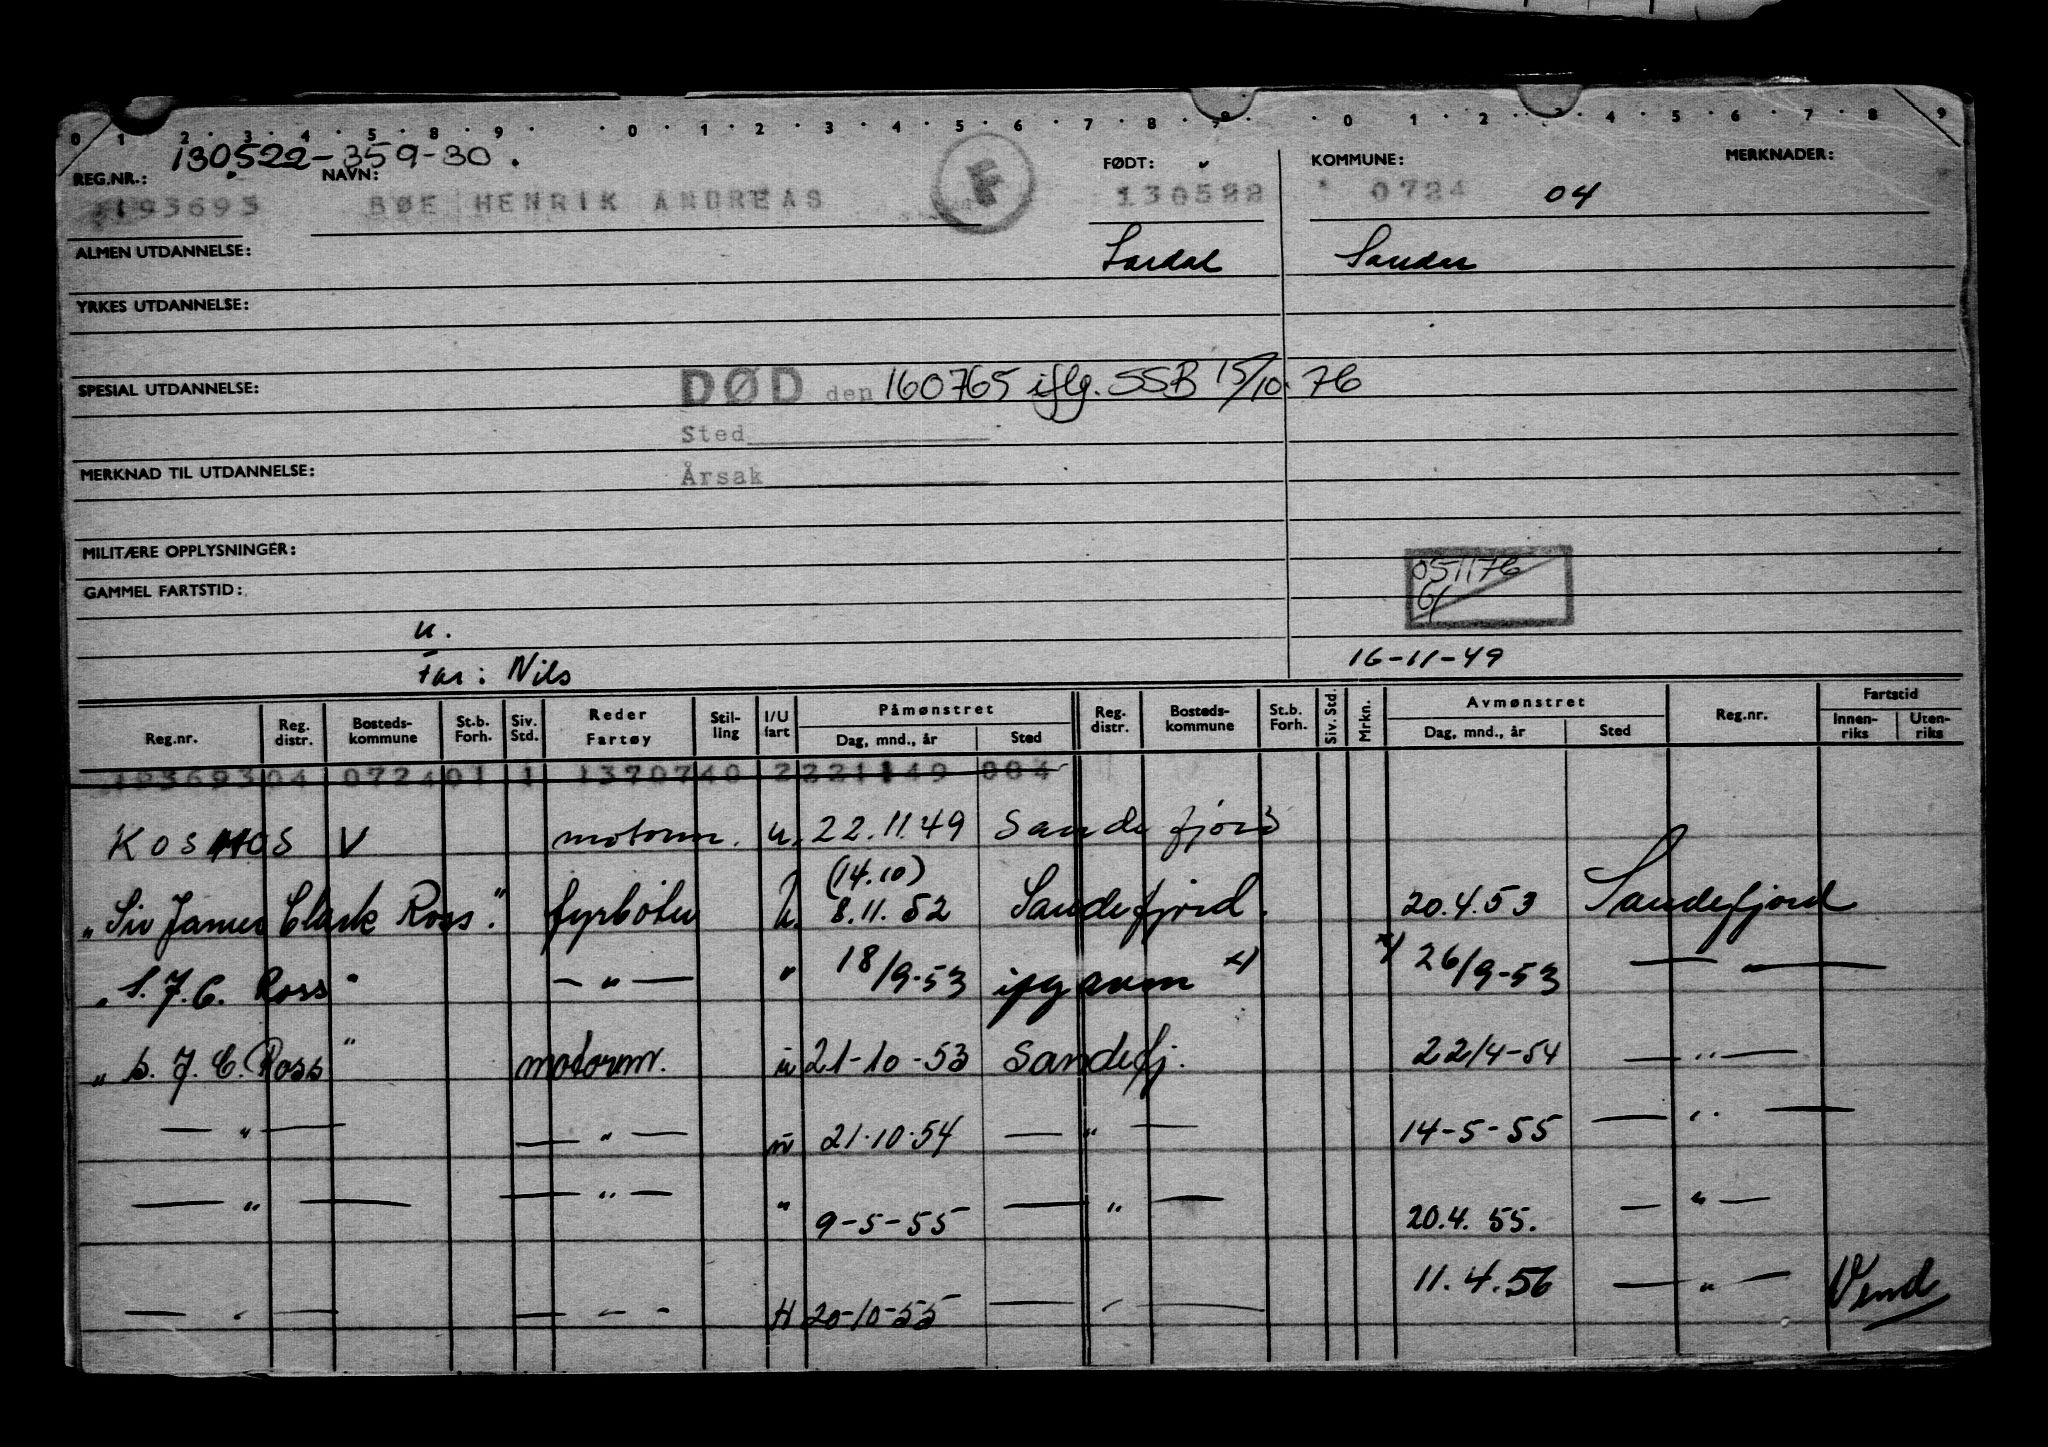 0 1 2 3 4 5 8 9 0 1 2 3 4 5 6 7 8 9 0 1 2 3 4 5 6 7 8 9
130522-359-30.
REG.NR.: NAVN: FØDT: KOMMUNE: MERKNADER:
193693 BØE HENRIK ANDREAS F 130522 0724 04
ALMEN UTDANNELSE: Lardal Sandar
YRKES UTDANNELSE:
SPESIAL UTDANNELSE: DØD den 160765 iflg. SSB 15/10.76
Sted
MERKNAD TIL UTDANNELSE: Årsak
MILITÆRE OPPLYSNINGER:
051176
GAMMEL FARTSTID:
u.
Far: Nils 16-11-49
Reg.nr. Reg. distr. Bosteds-kommune St.b. Forh. Siv. Std. Reder Fartøy Stil-ling I/U fart Påmønstret Dag, mnd., år Sted Reg. distr. Bosteds-kommune St.b. Forh. Siv. Std. Mrkn. Avmønstret Dag, mnd., år Sted Reg.nr. Fartstid Innen-riks Uten-riks
193693 04 0724 01 1 13707 40 2 221149 004
KOSMOS V motorm. u. 22.11.49 Sandefjord
(14.10)
"Sir James Clark Ross". fyrbøter u. 8.11.52 Sandefjord. 20.4.53 Sandefjord
"S.J.C. Ross" — " — " 18/9-53 ifg avm x) x) 26/9-53 — —
"S.J.C. Ross" motorm. u 21-10-53 Sandefj. 22/4-54 — " —
— " — — " — u 21.10.54 — " — 14-5-55 — " —
— " — — " — " 9-5-55 — " — 20.4.55. — " —
— " — — - - 20-10-55 — " — 11.4.56 — " — Vend